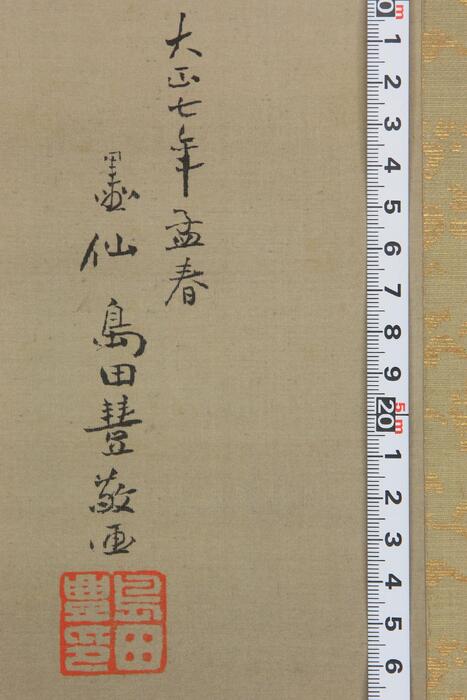 大正七年孟春
墨仙 島田豊敬画
島田
豊
0 m
1
2
3
4
5
6
7
8
9
20 5m
1
2
3
4
5
6